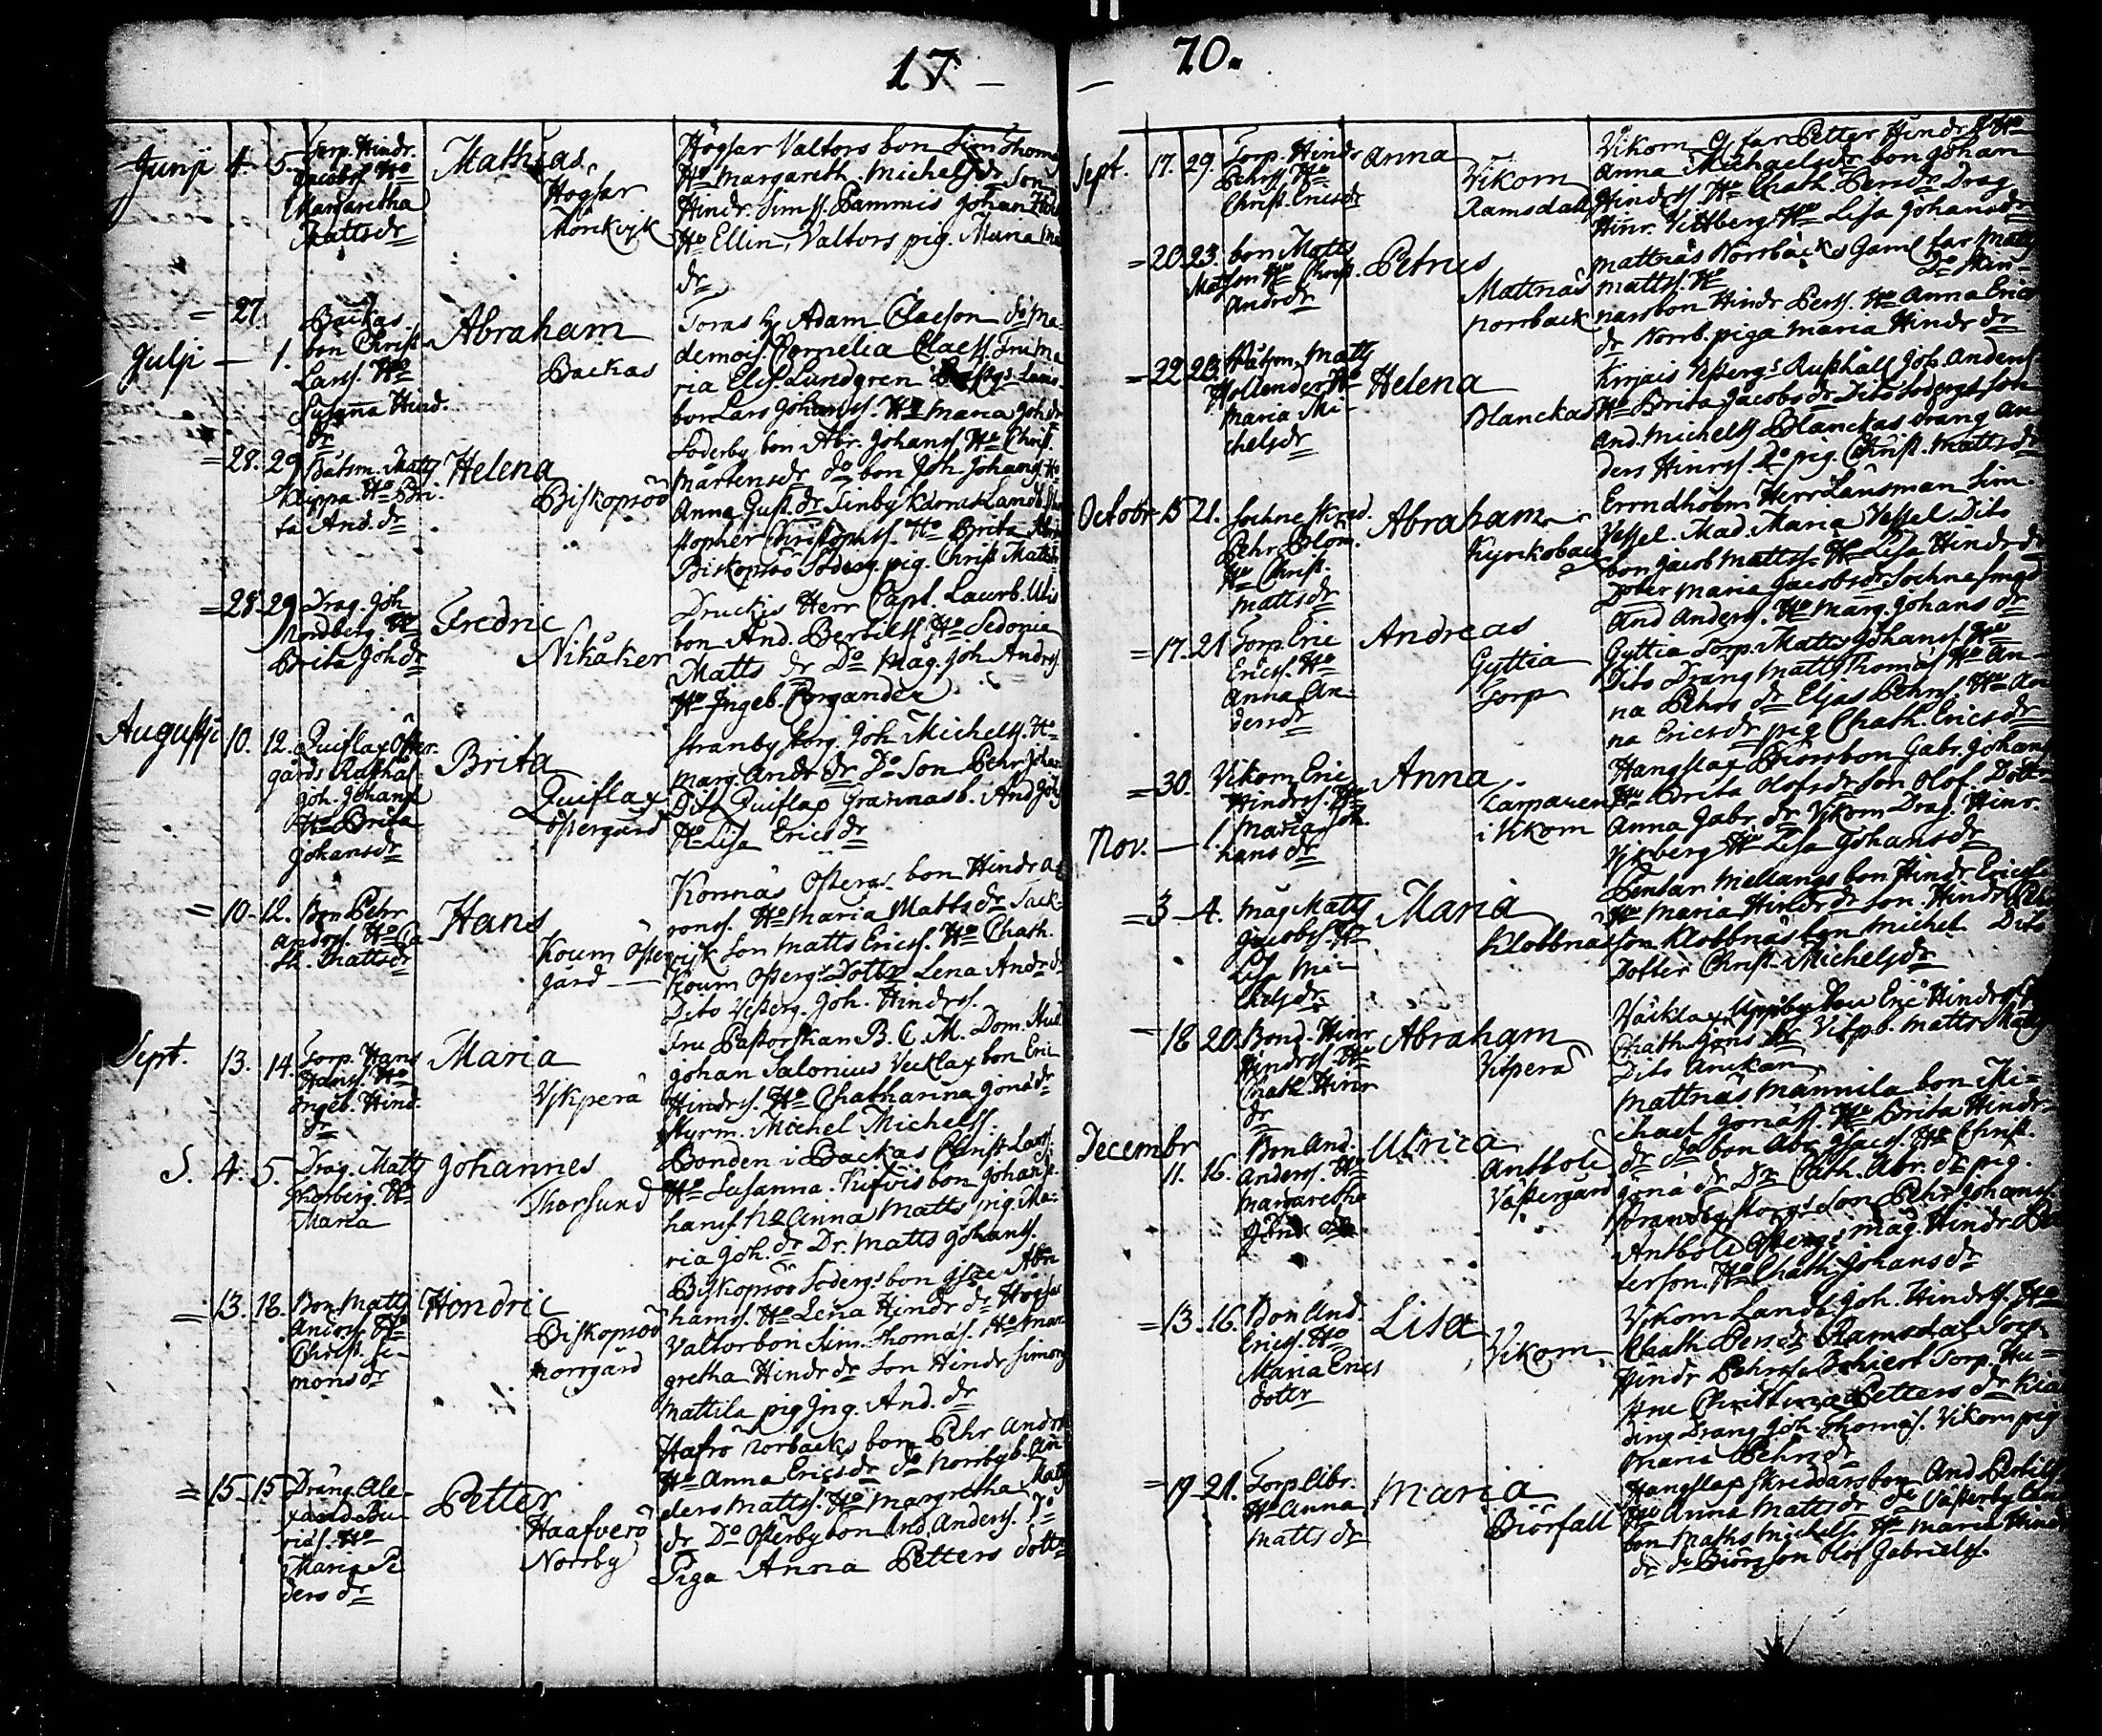 17
70.
Junij 4. 5.
Torp. Hindr.
Jacobss. Ho
Margaretha
Mattsdr
Mathias
Högsar
Mörkvijk
Högsar Valtors bon Sim Thom
Ho Margareth. Michelsdr Son
Hindr. Simss. Pammis Johan
Ho Ellin, Valtors pig. Maria
dr
= 27.
Julji — 1.
Backas
bon Christ
Larss. Ho
Susanna Hind.
dr
Abraham
Backas
Toras Hr Adam Claeson do Ma-
demois. Cornelia Claess. Fru Ma
ria Elis. Lundgren
bon Lars Johanss. Ho Maria Joh dr
Söderby bon Abr. Johanss. Ho Christ.
Mårtensdr do bon Joh. Johanss Ho
= 28. 29.
Båtsm. Matts
Klippa. Ho Bri-
ta And. dr
Helena
Biskopsöö
Anna Gust. dr Finby
stopher Christophss. Ho Brita
Biskopsöö Söderg. pig. Christ Matts
= 28. 29.
Drag. Joh
Nordberg. Ho
Brita Joh dr
Fredric
Nikåker
Druckis Herr Capt. Laurb.
bon And. Bertilss. Ho Sedonia
Matts dr Do Måg. Joh Andrs.
Ho Ingeb. Borgander
Augusti 10. 12.
Quiflax Öster-
gårds Rusthål
Joh. Johanss
Ho Brita
Johansdr
Brita
Quiflax
östergård
Stranby storg. Joh Michelss. Ho
Marg. Andr dr Do Son Pehr Johan
Dito Quiflax Grannasb. And Joh
Ho Lisa Ericsdr
= 10. 12.
Bon Pehr
Andrss. Ho Ca
th. Mattsdr
Hans
Koum Öster
gård —
Konnäs Österg. bon Hindr A
ronss. Ho Maria Mattsdr Sack-
vijk Son Matts Ericss. Ho Chath.
Koum Österg. Dotter Lena Andr dr
Dito Vesterg. Joh. Hindrss.
Sept. 13. 14.
Torp. Hans
Hanss. Ho
Ingeb. Hind.
dr
Maria
Vikperä
Fru Pastorskan B. C. M. Dom. Stud
Johan Salonius Vecklax bon Eric
Hindrss. Ho Chatharina Jonsdr
Styrm. Michel Michelss.
S. 4. 5.
Drag. Matts
Thorberg. Ho
Maria
Johannes
Thorsund
Bonden i Backas Christ Larss.
Ho Susanna. Kifvis bon Johan Jo-
hanss. Ho Anna Matts pig. Ma-
ria Joh. dr Dr. Matts Johanss.
= 13. 18.
Bon Matts
Andrss. Ho
Christ. Si-
monsdr
Hendric
Biskopsöö
norrgård
Biskopsöö Söderg. bon Isac Abra
hamss. Ho Lena Hindr dr Högsar
Valtor bon Sim. Thomas. Ho Mar
gretha Hindr dr Son Hindr Simons
Mattila pig Ing. And. dr
= 15. 15.
Dräng. Ale-
xand.
Ho
Maria Pe
ders dr
Petter
Haafverö
Norrby
Hafrö Norbacks bon Pehr Andr
Ho Anna Ericsdr do Norrby b. An-
ders Mattss. Ho Margretha Matts
dr Do Österby bon And. Anderss. Do
Piga Anna Petters dottr
Sept. 17. 29.
Torp. Hindr
Pehrss. Ho
Christ. Ericsdr
Anna
Vikom
Ramsdal
Vikom G. far Petter Hindr
Anna Michaelsdr bon Johan
Hindrss. Ho Chath. Persdr Drag.
Hinr. Vittberg Ho Lisa Johansdr
= 20. 23.
bon Matts
Matsson Ho Christ.
Andrdr
Petrus
Mattnäs
norrback
Mattnäs Norrbacks Gaml far Matts
Mattss. Ho
nars bon Hindr Perss. Ho Anna Eric
dr Norrb. piga Maria Hindr dr
= 22. 23.
Båtsm. Matts
Hollender Ho
Maria Mi-
chelsdr
Helena
Blanckas
Krejais Vesterg. Rusthåll Joh. Anders
Ho Brita Jacobsdr Dito Söderg. Son
And. Michelss Blanckas dräng An
ders Hinrss. Do pig. Christ. Mattsdr
Octobr 15 21.
Sochne Skräd.
Pehr Blom.
Ho Christ.
Mattsdr
Abraham
Kyrckoback
Errndholm Herr Länsman Sim.
Vessel. Mad. Maria Vessel. Dito
bon Jacob Mattss. Ho Lisa Hindrdr
Doter Maria Jacobsdr Sochne smed
And Anders. Ho Marg. Johans dr
= 17. 21
Torp. Eric
Ericss. Ho
Anna An
dersdr
Andreas
Gyttia
Torp
Gyttia Torp. Matts Johanss. Ho
Dito Dräng Matts Thomas Ho An-
na Pehrs dr Elias Pehrs. Ho An
na Ericsdr pig Chath. Ericsdr
= 30.
Nov. — 1.
Vikom Eric
Hindrss. Ho
Maria Jo-
hans dr
Anna
Carparen
i Vikom
Hangslax Biorsbon Gabr. Johans
Ho Brita Olofsdr Son Olof. Dotter
Anna Gabr. dr Vikom Drag. Hinr.
Vikberg Ho Lisa Johansdr
= 3 — 4.
Måg Matts
Jacobss. Ho
Lisa Mi-
chelsdr
Maria
Klobbnäs
Tensar Mellangs bon Hindr Ericss.
Ho Maria Hindrdr Son Hindr
son Klobbnäs bon Michel Dito
Dotter Christ Michelsdr
= 18 20.
Bond. Hinr
Hindrss. Ho
Chath. Hinr
dr
Abraham
Vikperä
Väcklax Uppby bon Eric Hindrss Ho
Chath Jons dr Vikpb. Matts Matts
Dito Anckan
Decembr
11. 16.
Bon And.
Anderss. Ho
Margaretha
Jöns dr
Ulrica
Antböle
Västergård
Mattnäs Mannila bon Mi-
chael Jonass. Ho Brita Hindr-
dr do bon Abr Isacss. Ho Christ.
Jona dr Do Cath. Abr. dr pig.
Stranby storgs Son Pehr Johanss.
Antböle Österg. måg. Hindr Pe
terson. Ho Chath. Johans dr
= 13. 16.
Bon And.
Ericss. Ho
Maria Erics
dottr
Lisa
Vikom
Vikom Landb. Joh. Hindrss. Ho
Chath Persdr Ramsdal Torp.
Hindr Pehrss. Torp. Hu-
stru Christina Petters dr
ding Dräng Joh. Thomas. Vikom pig
Maria Pehrsdr
= 19 21.
Torp. Abr.
Ho Anna
Matts dr
Maria
Biörfall
Hangslax Skreddars bon And Bertilss
Ho Anna Mattsdr do Västerby
bon Mathss Michelss. Ho Maria Hind
dr do Biörs Son Olof Gabrielss.